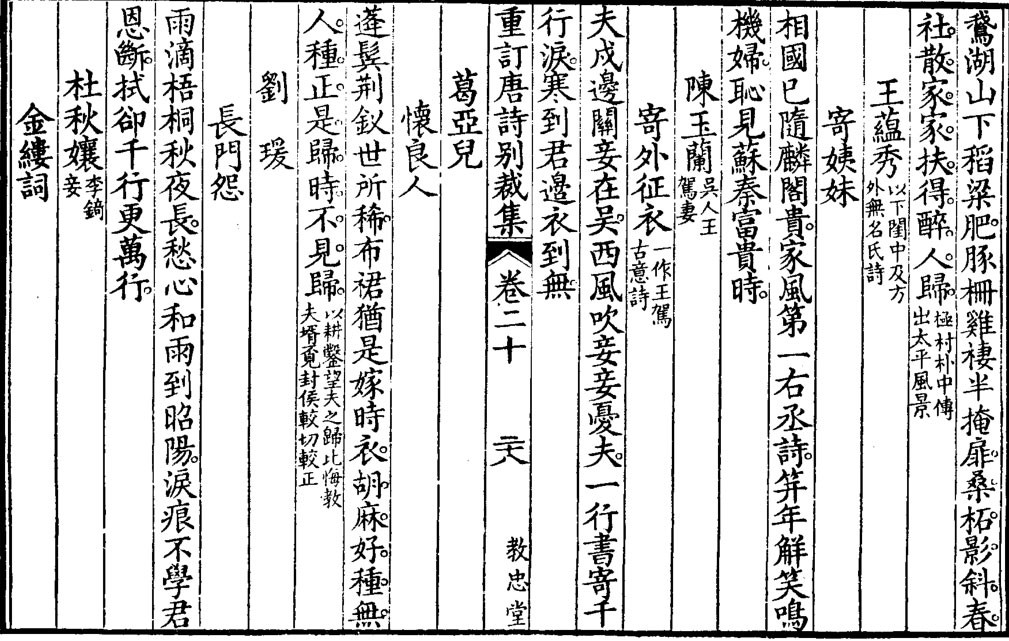 鵞湖山下稻粱肥豚柵雞棲半掩扉桑柘影斜春
社散家家扶得醉人歸極村朴中傳出太平風景
王蘊秀以下閨中及方外無名氏詩
寄姨妹
相國已隨麟閣貴家風第一右丞詩笄年解笑鳴
機婦恥見蘇秦富貴時
陳玉蘭吳人王駕妻
寄外征衣一作王駕古意詩
夫戍邊關妾在吳西風吹妾妾憂夫一行書寄千
行淚寒到君邊衣到無
重訂唐詩别裁集 卷二十 二六 教忠堂
葛亞兒
懷良人
蓬鬂荆釵世所稀布裙猶是嫁時衣胡麻好種無
人種正是歸時不見歸以耕鑿望夫之歸比悔教夫壻覓封侯較切較正
劉瑗
長門怨
雨滴梧桐秋夜長愁心和雨到昭陽淚痕不學君
恩斷拭卻千行更萬行
杜秋孃李錡妾
金縷詞